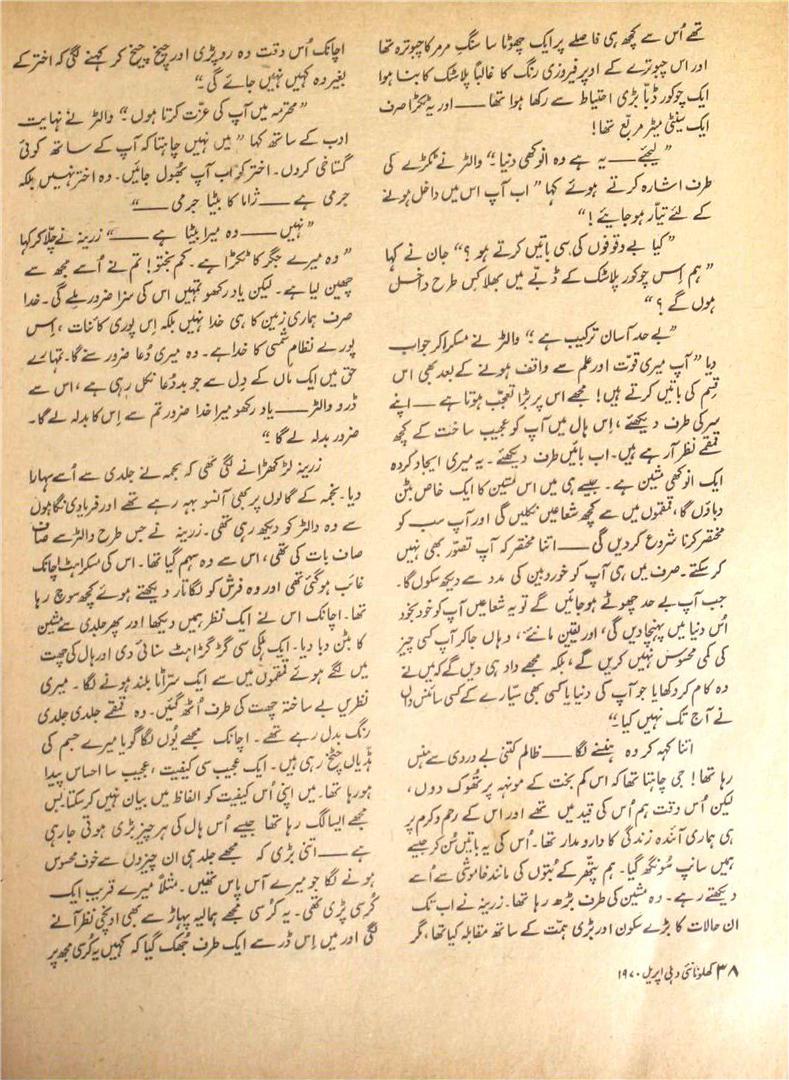 تھے اُس سے کچھ ہی فاصلے پر ایک چھوٹا سا سنگِ مرمر کا چبوترہ تھا
اور اس چبوترے کے اوپر فیروزی رنگ کا غالباً پلاسٹک کا بنا ہوا
ایک چوکور ڈبّا بڑی احتیاط سے رکھا ہوا تھا ـــ اور یہ ٹکڑا صرف
ایک سینٹی میٹر مربّع تھا!
”لیجئے ـــ یہ ہے وہ انوکھی دنیا“ والٹر نے ٹکڑے کی
طرف اشارہ کرتے ہوئے کہا ”اب آپ اس میں داخل ہونے
کے لئے تیّار ہو جایئے!“
”کیا بے وقوفوں کی سی باتیں کرتے ہو؟“ جان نے کہا
”ہم اِس چوکور پلاسٹک کے ڈبّے میں بھلا کس طرح داخل
ہوں گے؟“
”بے حد آسان ترکیب ہے“ والٹر نے مسکرا کر جواب
دیا ”آپ میری قوّت اور علم سے واقف ہونے کے بعد بھی اس
قِسم کی باتیں کرتے ہیں! مجھے اس پر بڑا تعجّب ہوتا ہے ـــ اپنے
سر کی طرف دیکھئے، اِس ہال میں آپ کو عجیب ساخت کے کچھ
قمقمے نظر آ رہے ہیں۔ اب بائیں طرف دیکھئے۔ یہ میری ایجاد کردہ
ایک انوکھی مشین ہے۔ جیسے ہی میں اس مشین کا ایک خاص بٹن
دباؤں گا، قمقموں میں سے کچھ شعاعیں نکلیں گی اور آپ سب کو
مختصر کرنا شروع کر دیں گی ـــ اتنا مختصر کہ آپ تصوّر بھی نہیں
کر سکتے۔ صرف میں ہی آپ کو خوردبین کی مدد سے دیکھ سکوں گا۔
جب آپ بے حد چھوٹے ہو جائیں گے تو یہ شعاعیں آپ کو خود بخود
اُس دنیا میں پہنچا دیں گی، اور یقین مانئے، وہاں جا کر آپ کسی چیز
کی کمی محسوس نہیں کریں گے، بلکہ مجھے داد ہی دیں گے کہ میں نے
وہ کام کر دکھایا جو آپ کی دنیا یا کسی بھی سیّارے کے کسی سائنس داں
نے آج تک نہیں کیا۔“
اتنا کہہ کر وہ ہنسنے لگا ـــ ظالم کتنی بے دردی سے ہنس
رہا تھا! جی چاہتا تھا کہ اس کم بخت کے مونہہ پر تُھوک دوں،
لیکن اُس وقت ہم اُس کی قید میں تھے اور اس کے رحم و کرم پر
ہی ہماری آئندہ زندگی کا دار و مدار تھا۔ اُس کی یہ باتیں سُن کر جیسے
ہمیں سانپ سُونگھ گیا۔ ہم پتّھر کے بُتوں کی مانند خاموشی سے اُسے
دیکھتے رہے۔ وہ مشین کی طرف بڑھ رہا تھا۔ زرینہ نے اب تک
ان حالات کا بڑے سکون اور بڑی ہمّت کے ساتھ مقابلہ کیا تھا، مگر
اچانک اُس وقت وہ رو پڑی اور چیخ چیخ کر کہنے لگی کہ اختر کے
بغیر وہ کہیں نہیں جائے گی۔“
”محترمہ میں آپ کی عزّت کرتا ہوں“ والٹر نے نہایت
ادب کے ساتھ کہا ”میں نہیں چاہتا کہ آپ کے ساتھ کوئی
گستاخی کروں۔ اختر کو اب آپ بُھول جائیں۔ وہ اختر نہیں بلکہ
جرمی ہے ـــ ژاما کا بیٹا جرمی ـــ“
”نہیں ـــ وہ میرا بیٹا ہے ـــ“ زرینہ نے چلّا کر کہا
”وہ میرے جگر کا ٹکڑا ہے۔ کم بختو! تم نے اُسے مجھ سے
چھین لیا ہے۔ لیکن یاد رکھو تمہیں اس کی سزا ضرور ملے گی۔ خدا
صرف ہماری زمین کا ہی خدا نہیں بلکہ اِس پوری کائنات، اِس
پورے نظامِ شمسی کا خدا ہے۔ وہ میری دُعا ضرور سنے گا۔ تمہارے
حق میں ایک ماں کے دِل سے جو بد دُعا نکل رہی ہے، اس سے
ڈرو والٹر ـــ یاد رکھو میرا خدا ضرور تم سے اِس کا بدلہ لے گا۔
ضرور بدلہ لے گا۔“
زرینہ لڑکھڑانے لگی تھی کہ نجمہ نے جلدی سے اُسے سہارا
دیا۔ نجمہ کے گالوں پر بھی آنسو بہہ رہے تھے اور فریادی نگاہوں
سے وہ والٹر کو دیکھ رہی تھی۔ زرینہ نے جس طرح والٹر سے صاف
صاف بات کی تھی، اس سے وہ سہم گیا تھا۔ اس کی مسکراہٹ اچانک
غائب ہو گئی تھی اور وہ فرش کو لگاتار دیکھتے ہوئے کچھ سوچ رہا
تھا۔ اچانک اس نے ایک نظر ہمیں دیکھا اور پھر جلدی سے مشین
کا بٹن دبا دیا۔ ایک ہلکی سی گڑگڑاہٹ سنائی دی اور ہال کی چھت
میں لگے ہوئے قمقموں میں سے ایک سرّاٹا بلند ہونے لگا۔ میری
نظریں بے ساختہ چھت کی طرف اُٹھ گئیں۔ وہ قمقمے جلدی جلدی
رنگ بدل رہے تھے۔ اچانک مجھے یُوں لگا گویا میرے جسم کی
ہڈیاں چٹخ رہی ہیں۔ ایک عجیب سی کیفیت، عجیب سا احساس پیدا
ہو رہا تھا۔ میں اپنی اُس کیفیت کو الفاظ میں بیان نہیں کر سکتا، بس
مجھے ایسا لگ رہا تھا جیسے اُس ہال کی ہر چیز بڑی ہوتی جا رہی
ہے ـــ اتنی بڑی کہ مجھے جلد ہی ان چیزوں سے خوف محسوس
ہونے لگا جو میرے آس پاس تھیں۔ مثلاً میرے قریب ایک
کُرسی پڑی تھی۔ یہ کُرسی مجھے ہمالیہ پہاڑ سے بھی اونچی نظر آنے
لگی اور میں اِس ڈر سے ایک طرف جُھک گیا کہ کہیں یہ کُرسی مجھ پر
۳۸ کھلونا نئی دہلی اپریل ۱۹۷۰